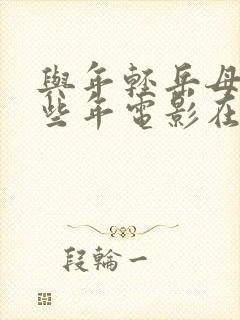 與年輕岳母
些年電影在
段輪一